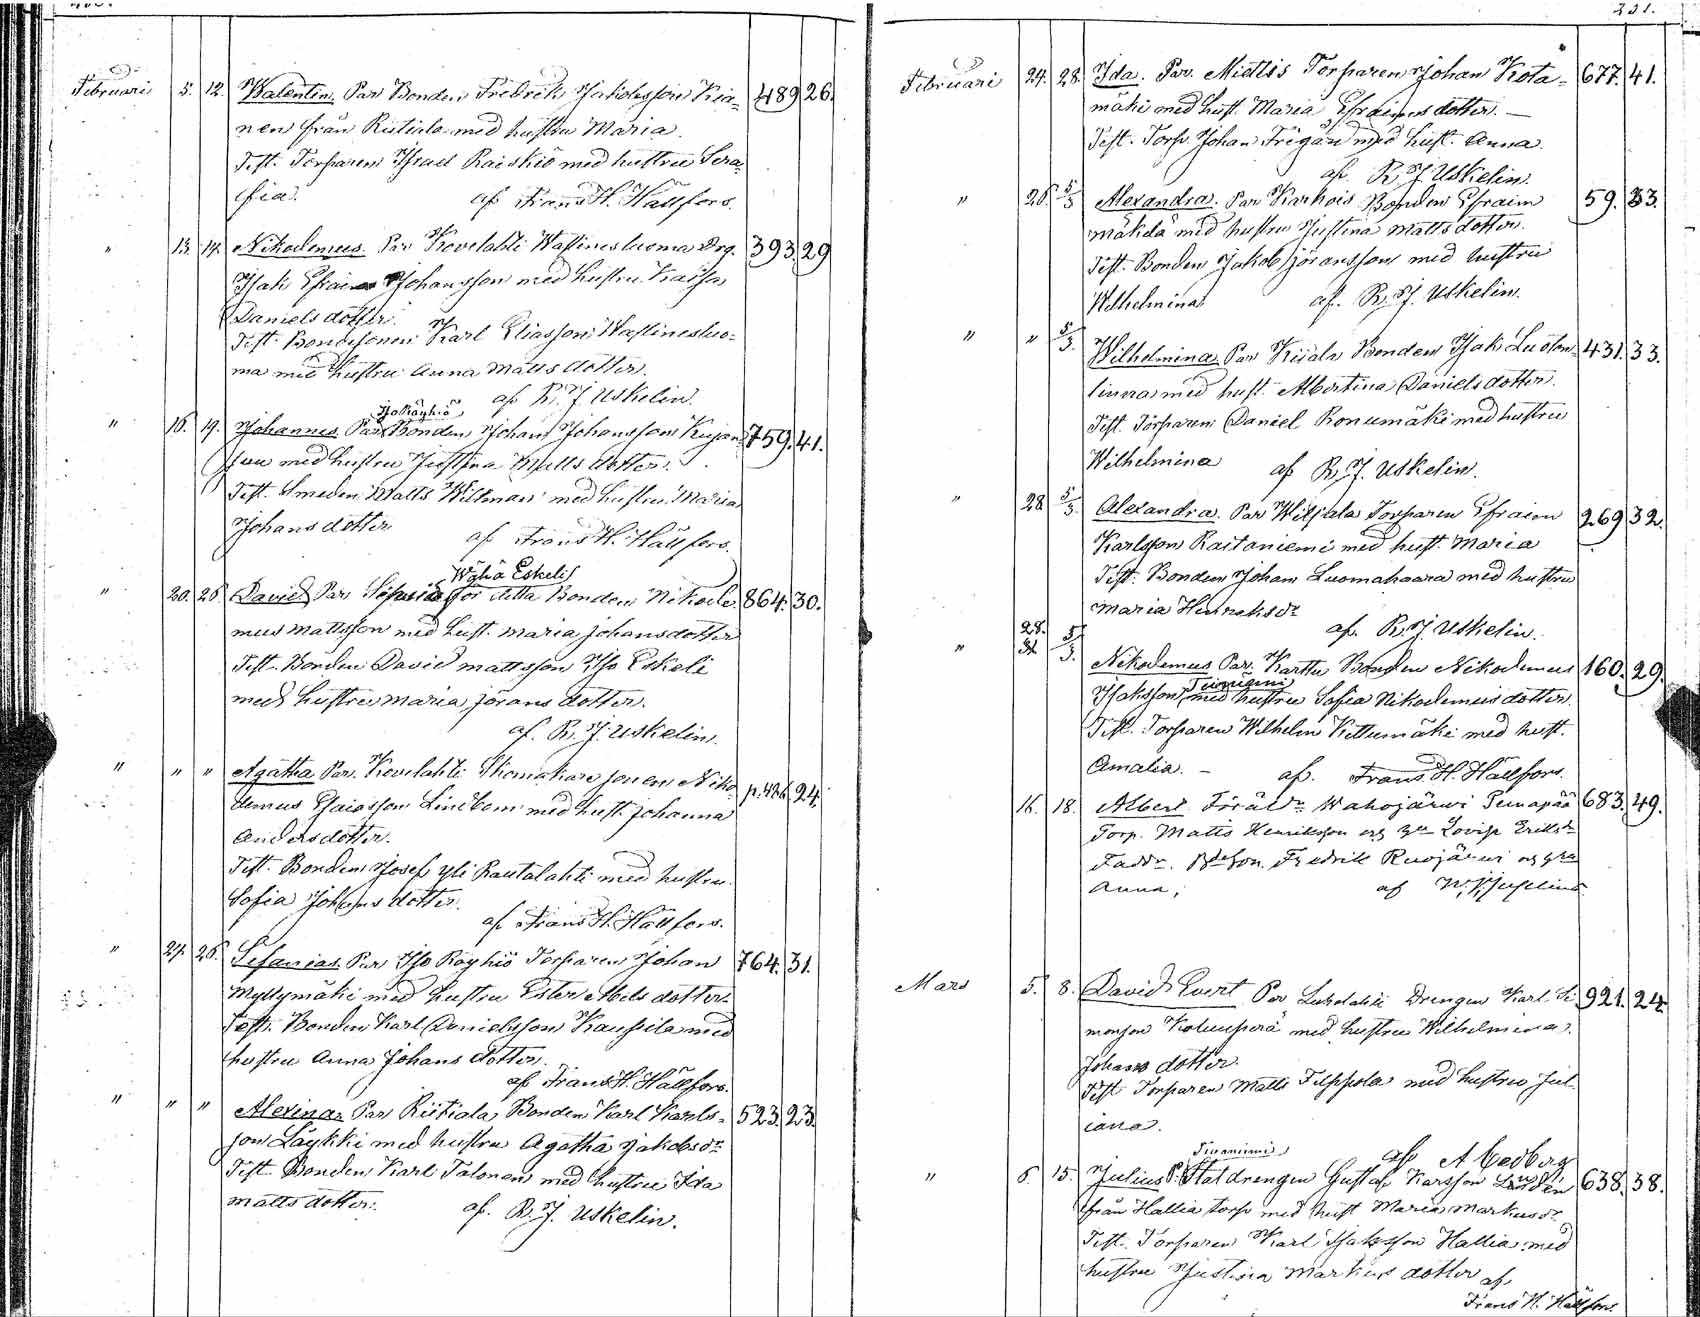 231.
Februari 5. 12. Walentin. Par Bonden Fredrik Jakobsson Kia- 489 26.
nen från Riitiala med hustru Maria.
Test. Torparen Israel Raiskiö med hustru Sera-
fia. af Frans H. Hällfors.
" 13. 14. Nikodemus. Par Kovelahti Wastinesluoma Drg. 393. 29
Isak Efraim Johansson med hustru Kaisa
Danielsdotter.
Test. Bondesonen Karl Eliasson Wastinesluo-
ma med hustru Anna Mattsdotter.
af R. J. Uskelin.
Iso Röyhiö
" 16. 19. Johannes. Par Bonden Johan Johansson Kujan- 759. 41.
suu med hustru Justina Matts dotter.
Test. Smeden Matts Willman med hustru Maria
Johans dotter af Frans H. Hällfors.
Wähä Eskeli
" 20. 26. David Par för detta Bonden Nikode- 864. 30.
mus Mattsson med hust. Maria Johansdotter
Test. Bonden David Mattsson Iso Eskeli
med hustru Maria Jörans dotter.
af. R. J. Uskelin.
" " " Agatha Par. Kovelahti Skomakare sonen Niko- 24.
demus Esaiasson Lindbom med hust. Johanna
Andersdotter.
Test. Bonden Josef Yli Rautalahti med hustru
Sofia Johans dotter.
af Frans H. Hällfors.
" 24. 26. Sefanias. Par Iso Röyhiö Torparen Johan 764. 31.
Myllymäki med hustru Ester Abels dotter.
Test. Bonden Karl Danielsson Kauppila med
hustru Anna Johans dotter.
af Frans H. Hällfors.
" " " Alexina. Par Riitiala Bonden Karl Karls- 523. 23.
son Läykki med hustru Agatha Jakobsdr
Test. Bonden Karl Talonen med hustru Ida
Mattsdotter. af. R. J. Uskelin.
Februari 24. 28. Ida. Par. Miettis Torparen Johan Kota- 677. 41.
mäki med hust. Maria Efraimsdotter. —
Test. Torp. Johan Frigård med hust. Anna.
af. R. J. Uskelin.
" 26. 5/3 Alexandra. Par Karhois Bonden Efraim 59. 33.
Mäkelä med hustru Justina Mattsdotter.
Test. Bonden Jakob Jöransson med hustru
Wilhelmina. af. R. J. Uskelin.
" " 5/3. Wilhelmina. Par Kiiala Bonden Isak Luoton- 431. 33.
linna med hust. Albertina Danielsdotter.
Test. Torparen Daniel Ronumäki med hustru
Wilhelmina af R. J. Uskelin.
" 28. 5/3. Alexandra. Par Wiljala Torparen Efraim 269 32.
Karlsson Raitaniemi med hust. Maria
Test. Bonden Johan Luomahaara med hustru
Maria Henriksdr
af. R. J. Uskelin.
" 28. 5/3. Nikodemus Par. Karttu Bonden Nikodemus 160. 29.
Isaksson med hustru Sofia Nikodemusdotter.
Test. Torparen Wilhelm Kettumäki med hust.
Amalia. — af. Frans. H. Hällfors.
16. 18. Albert Föräldr Wahojärwi Peurapää 683. 49.
Torp. Matts Henriksson og hu Lovisa Eriksdr
Faddr. Bdeson Fredrik Ruojärwi og hu
Anna; af
Mars 5. 8. David Evert Par Luhalahti Drengen Karl Si- 921. 24.
monson Koluuperä med hustru Wilhelmina
Johans dotter.
Test Torparen Matts Filppola med hustru Jul-
iana.
af A Hedberg
" 6. 15. Julius P. Staldrengen Gustaf Karsson Lindén 638. 38.
från Hallia torp med hust Maria Markusdr
Test. Torparen Karl Isaksson Hallia med
hustru Justina Markus dotter af
Frans H. Hällfors.